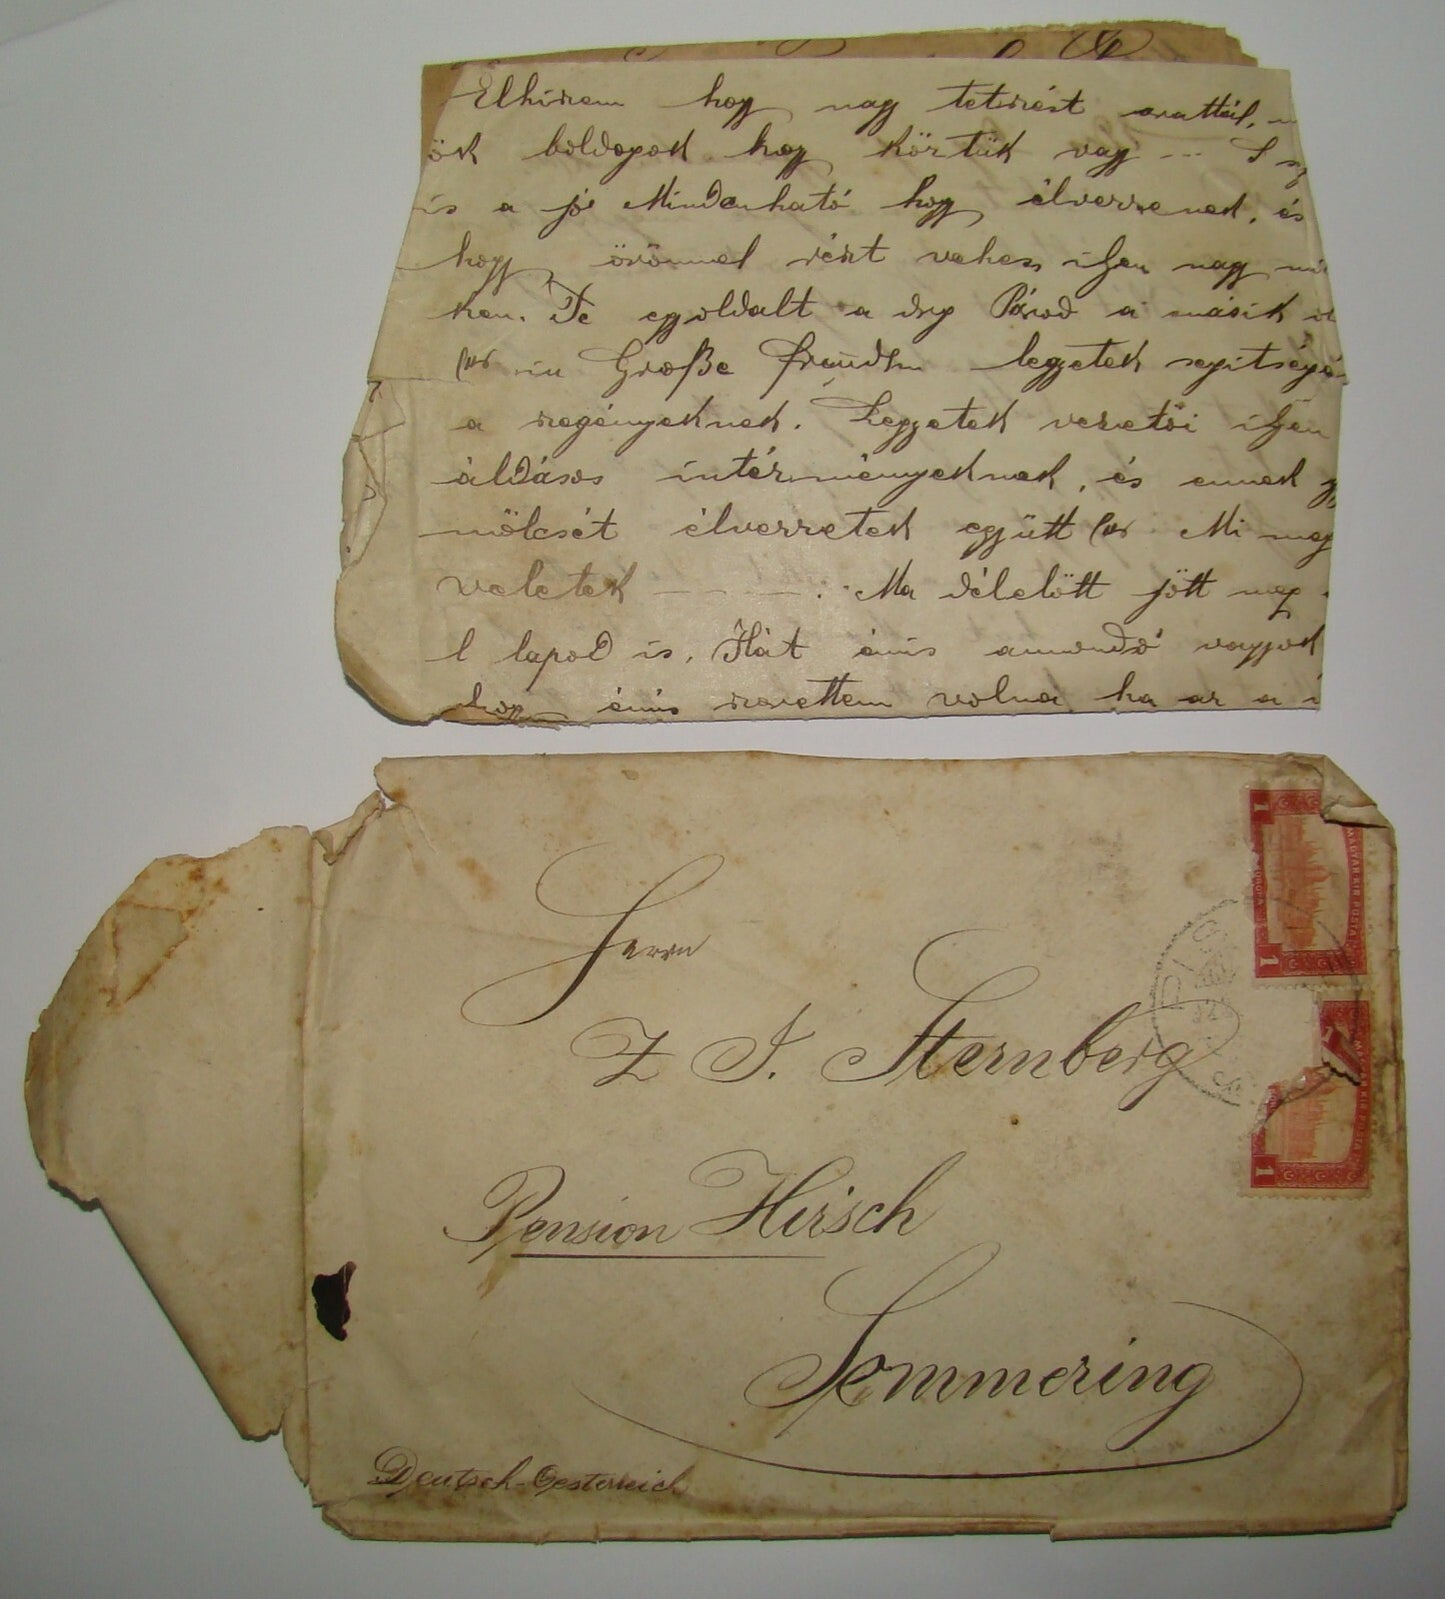 Elhiszem hogy nagy tetszést arattál,
ők boldogok hogy köztük vagy --- S
is a jó Mindenható hogy élvezzenek, és
hogy örömmel részt vehess ilyen nagy
ken. Te egyoldalt a drg Párod a másik
in Große Freuden legyetek segitségé
a szegényeknek. Legyetek vezetői ilyen
áldásos intézményeknek, és ennek gy
mölcsét élvezzetek együtt Mi meg
veletek ---- : Ma délelőtt jött meg
l lapod is, Hát énis amondó vagyok
hogy énis szerettem volna ha az a
Herrn
Z J. Sternberg
Pension Hirsch
Semmering
Deutsch-Oesterreich
1
MAGYAR KIR POSTA
1
MAGYAR KIR POSTA
1